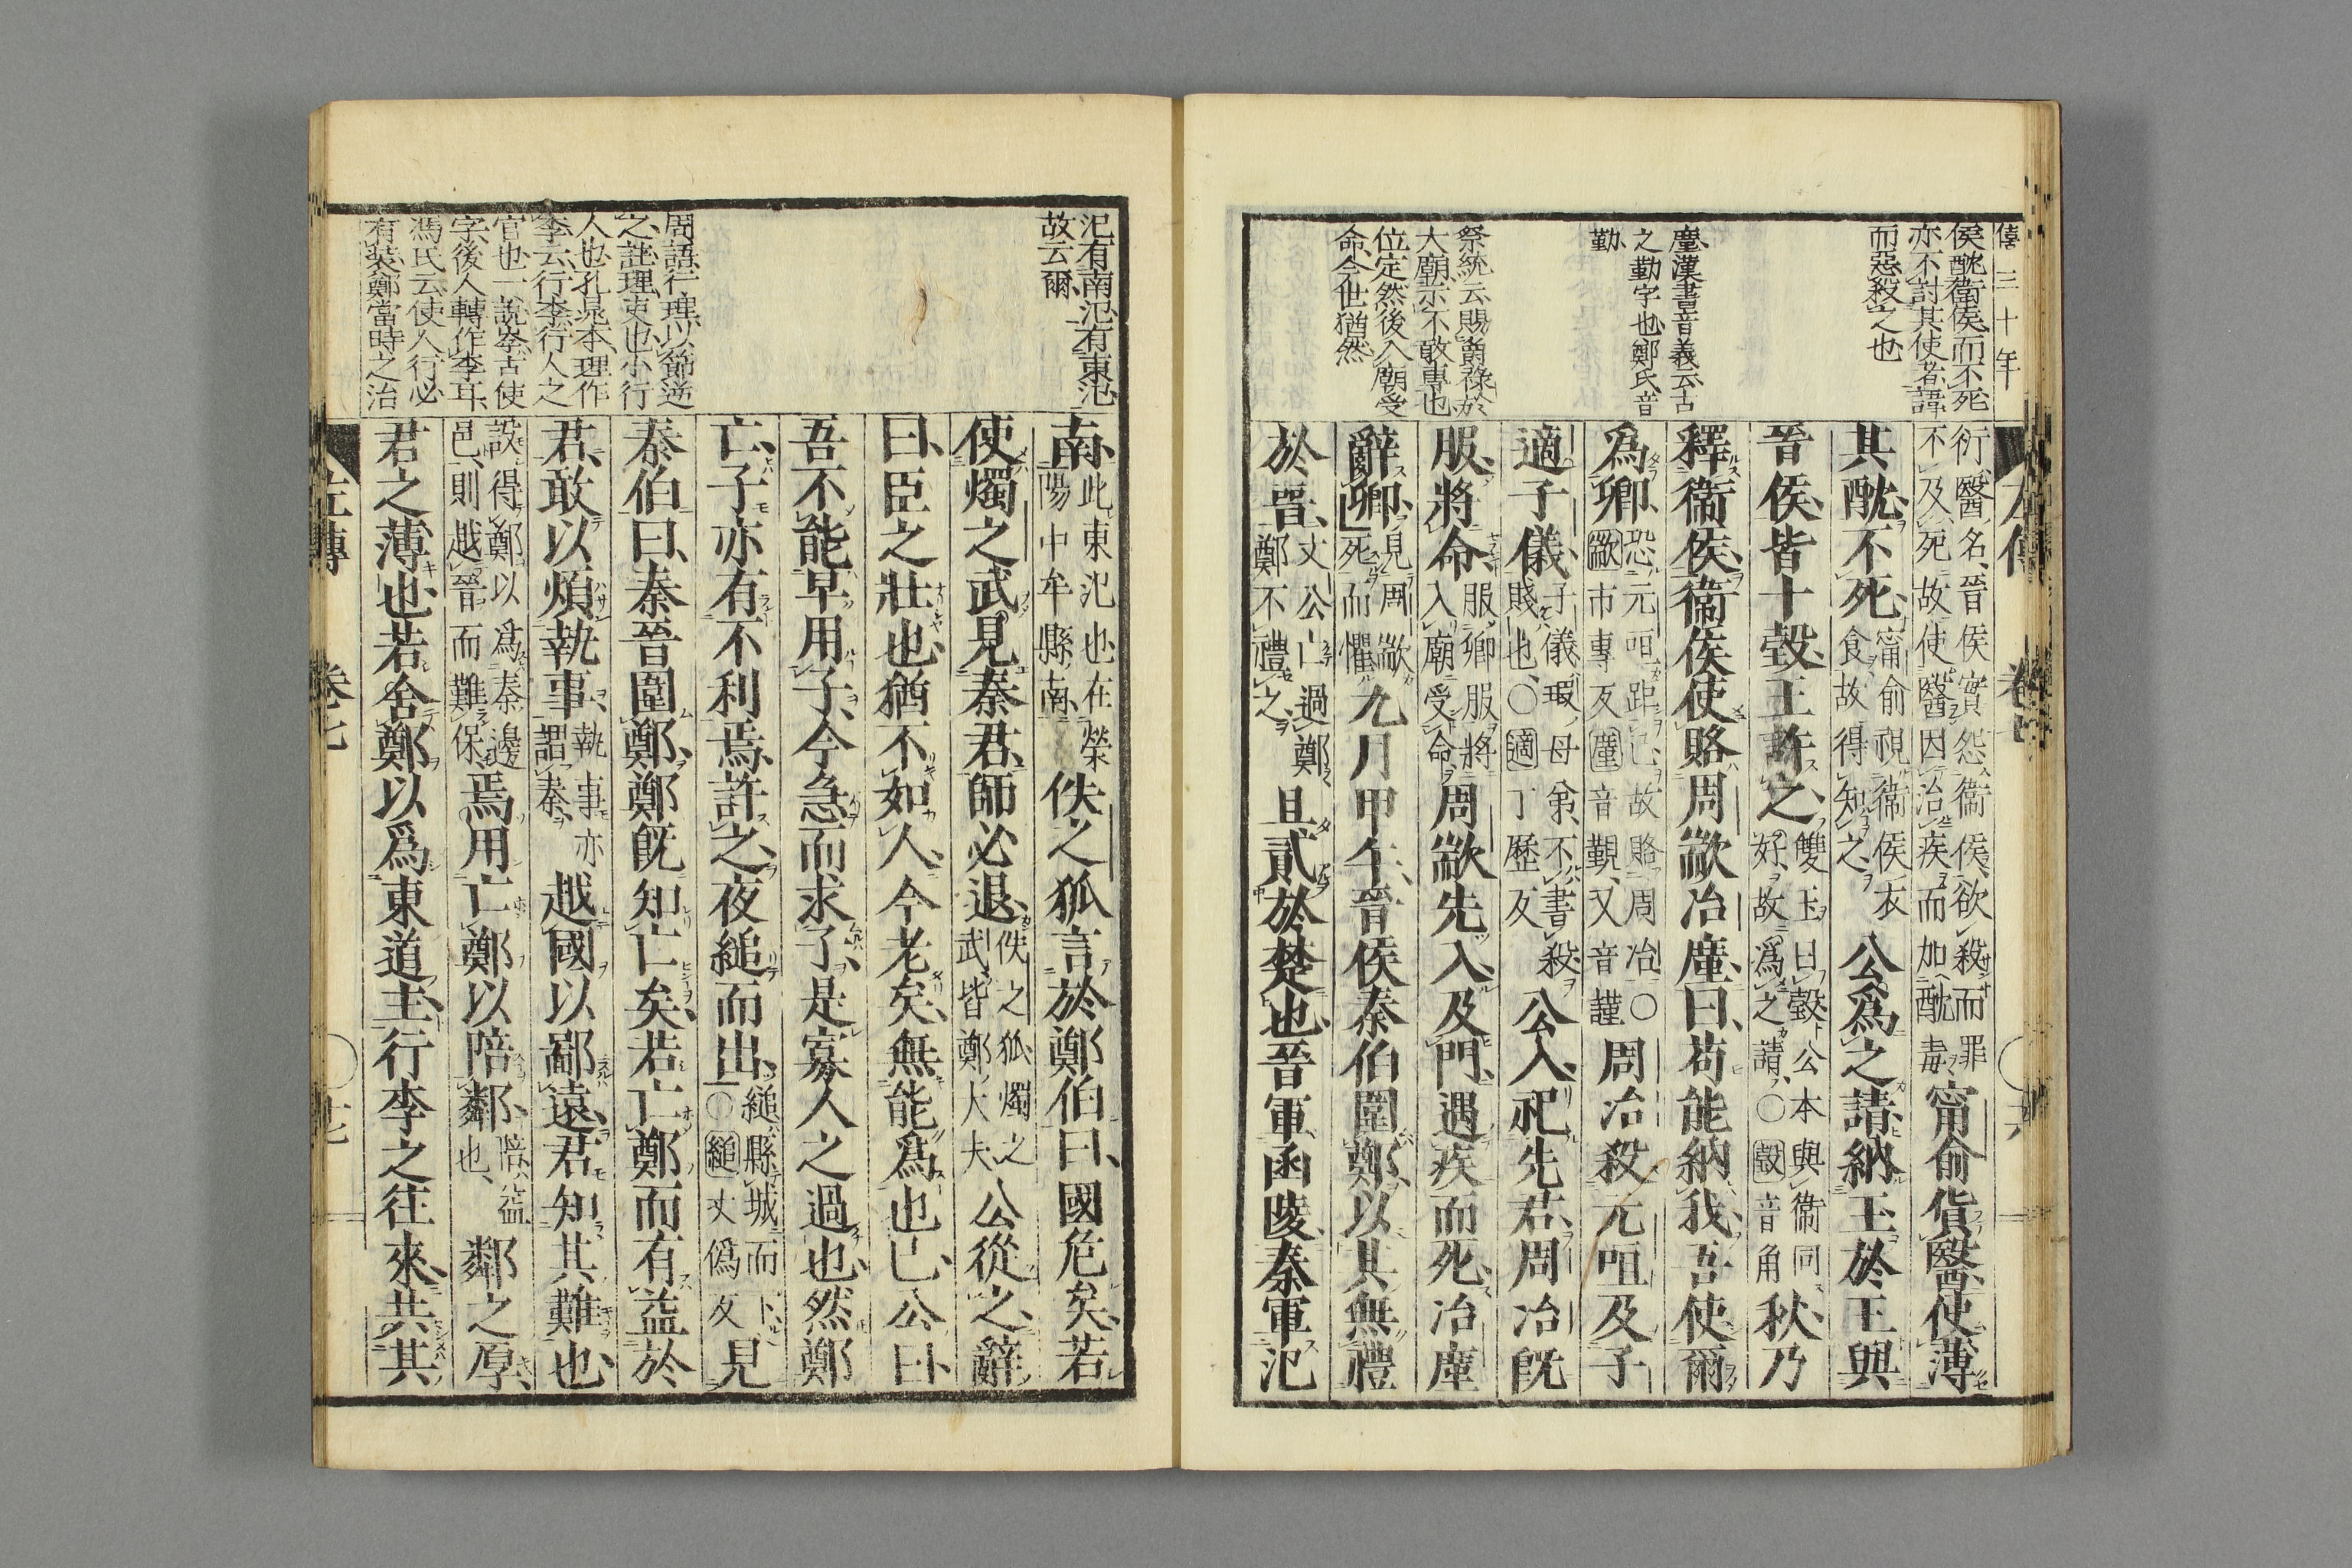 僖三十年
侯酖衛侯而不死
亦不討其使者諱
而惡殺之也
廑漢書音義云古
之勤字也鄭氏音
勤
祭統云賜爵祿於
大廟示不敢專也
位定然後入廟受
命今世猶然
左傳 卷七
衍醫名晉侯實怨衛侯欲殺而罪
不及死故使醫因治疾而加酖毒
甯俞貨醫使薄
其酖不死
甯俞視衛侯衣
食故得知之
公爲之請納玉於王與
晉侯皆十瑴王許之
雙玉曰瑴公本與衛同
好故爲之請〇瑴音角
秋乃
釋衛侯衛侯使賂周歂冶廑曰苟能納我吾使爾
爲卿
恐元咺距己故賂周冶〇
歂市專反廑音觀又音謹
周冶殺元咺及子
適子儀
子儀瑕母弟不書殺
賤也〇適丁歷反
公入祀先君周冶既
服將命
服卿服將
入廟受命
周歂先入及門遇疾而死冶廑
辭卿
見周歂
死而懼
九月甲午晉侯秦伯圍鄭以其無禮
於晉
文公亡過鄭
鄭不禮之
且貳於楚也晉軍函陵秦軍氾
氾有南氾有東氾
故云爾
周語行理以節逆
之註理吏也小行
人也孔晁本理作
李云行李行人之
官也一說岺古使
字後人轉作李耳
馮氏云使人行必
有裝鄭當時之治
南
此東氾也在滎
陽中牟縣南
佚之狐言於鄭伯曰國危矣若
使燭之武見秦君師必退
佚之狐燭之
武皆鄭大夫
公從之辭
曰臣之壯也猶不如人今老矣無能爲也已公曰
吾不能早用子今急而求子是寡人之過也然鄭
亡子亦有不利焉許之夜縋而出
縋縣城而下
〇縋丈僞反
見
秦伯曰秦晉圍鄭鄭既知亡矣若亡鄭而有益於
君敢以煩執事
執事亦
謂秦
越國以鄙遠君知其難也
設得鄭以爲秦邊
邑則越晉而難保
焉用亡鄭以陪鄰
陪益
也
鄰之厚
君之薄也若舍鄭以爲東道主行李之往來共其
左傳 卷七